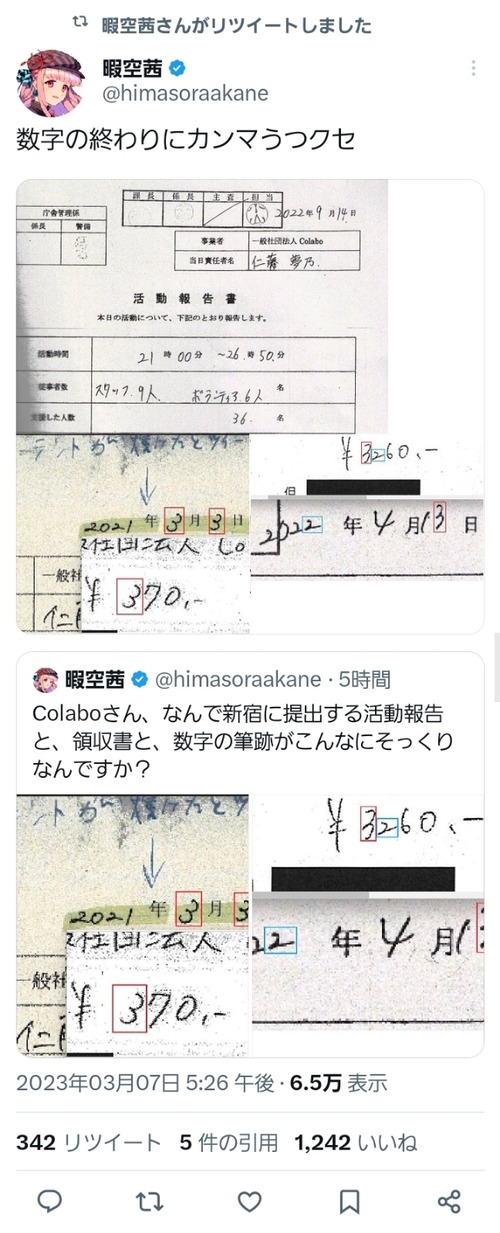 暇空茜さんがリツイートしました
暇空茜
@himasoraakane
数字の終わりにカンマうつクセ
課長 係長 主査 担当
2022年9月14日
庁舎管理係
係長 警備
事業者 一般社団法人 Colabo
当日責任者名 仁藤 夢乃.
活動報告書
本日の活動について、下記のとおり報告します。
活動時間 21時00分 ~26.時50.分
従事者数 スタッフ.9人. ボランティア3.6人 名
支援した人数 36. 名
¥3260.-
2021年3月3日
社団法人 Co
一般社
¥370.-
2022年4月13日
暇空茜 @himasoraakane · 5時間
Colaboさん、なんで新宿に提出する活動報告
と、領収書と、数字の筆跡がこんなにそっくり
なんですか？
¥3260.-
2021年3月3
社団法人
一般社
¥370.-
22年4月1
2023年03月07日 5:26 午後 · 6.5万 表示
342 リツイート 5 件の引用 1,242 いいね